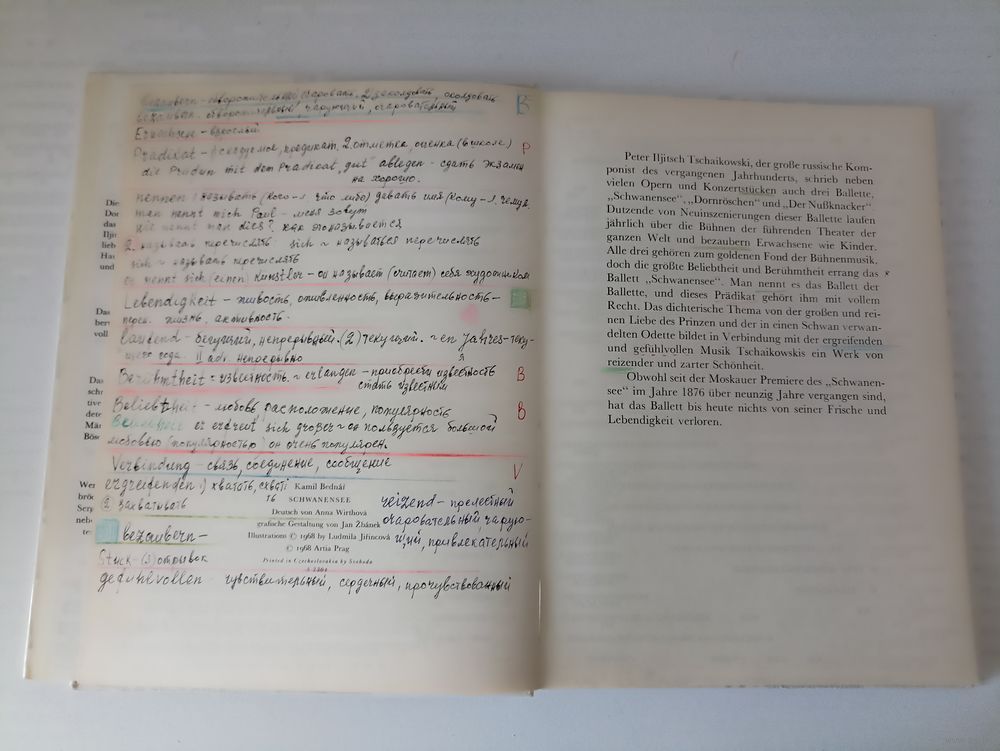 bezaubern - обворожительно очаровать. 2. заколдовать, околдовать
bezaubern. обворожительный, чарующий, очаровательный
B
Erwachsen - взрослый
Prädikat - 1 сказуемое, предикат. 2. отметка, оценка (в школе)
P
die Prüfun mit dem Prädikat "gut" ablegen - сдать экзамен
на хорошо.
nennen 1 называть (кого-л. что либо) давать имя (кому-л., чему л.
man nennt mich Paul - меня зовут
wie nennt man dies? как это называется
2. называть перечислять sich ~ называться перечислять
sich ~ называть перечислять
er nennt sich (einen) Künstler - он называет (считает) себя художником
Lebendigkeit - живость, оживленность, выразительность -
перен. жизнь, активность.
laufend - бегущий, непрерывный. (2) текущий. ~ en Jahres - теку-
щего года. II adv. непрерывно
Berühmtheit = известность. ~ erlangen - приобрести известность
стать известным
B
Beliebtheit - любовь, расположение, популярность
B
er erfreut sich großer ~ он пользуется большой
любовью (популярностью) он очень популярен.
Verbindung - связь, соединение, сообщение
V
ergreifenden 1) хватать, схвати
ть
2 захватывать
Kamil Bednář
SCHWANENSEE
Deutsch von Anna Wirthová
grafische Gestaltung von Jan Žbánek
Illustrations © 1968 by Ludmila Jiřincová
© 1968 Artia Prag
Printed in Czechoslovakia by Svoboda
reizend - прелестный
очаровательный, чарую-
щий, привлекательный
bezaubern -
Stück - (3) отрывок
gefühlvollen - чувствительный, сердечный, прочувствованный
Peter Iljitsch Tschaikowski, der große russische Kom-
ponist des vergangenen Jahrhunderts, schrieb neben
vielen Opern und Konzertstücken auch drei Ballette,
„Schwanensee“, „Dornröschen“ und „Der Nußknacker“.
Dutzende von Neuinszenierungen dieser Ballette laufen
jährlich über die Bühnen der führenden Theater der
ganzen Welt und bezaubern Erwachsene wie Kinder.
Alle drei gehören zum goldenen Fond der Bühnenmusik,
doch die größte Beliebtheit und Berühmtheit errang das
Ballett „Schwanensee“. Man nennt es das Ballett der
Ballette, und dieses Prädikat gehört ihm mit vollem
Recht. Das dichterische Thema von der großen und rei-
nen Liebe des Prinzen und der in einen Schwan verwan-
delten Odette bildet in Verbindung mit der ergreifenden
und gefühlvollen Musik Tschaikowskis ein Werk von
reizender und zarter Schönheit.
Obwohl seit der Moskauer Premiere des „Schwanen-
see“ im Jahre 1876 über neunzig Jahre vergangen sind,
hat das Ballett bis heute nichts von seiner Frische und
Lebendigkeit verloren.